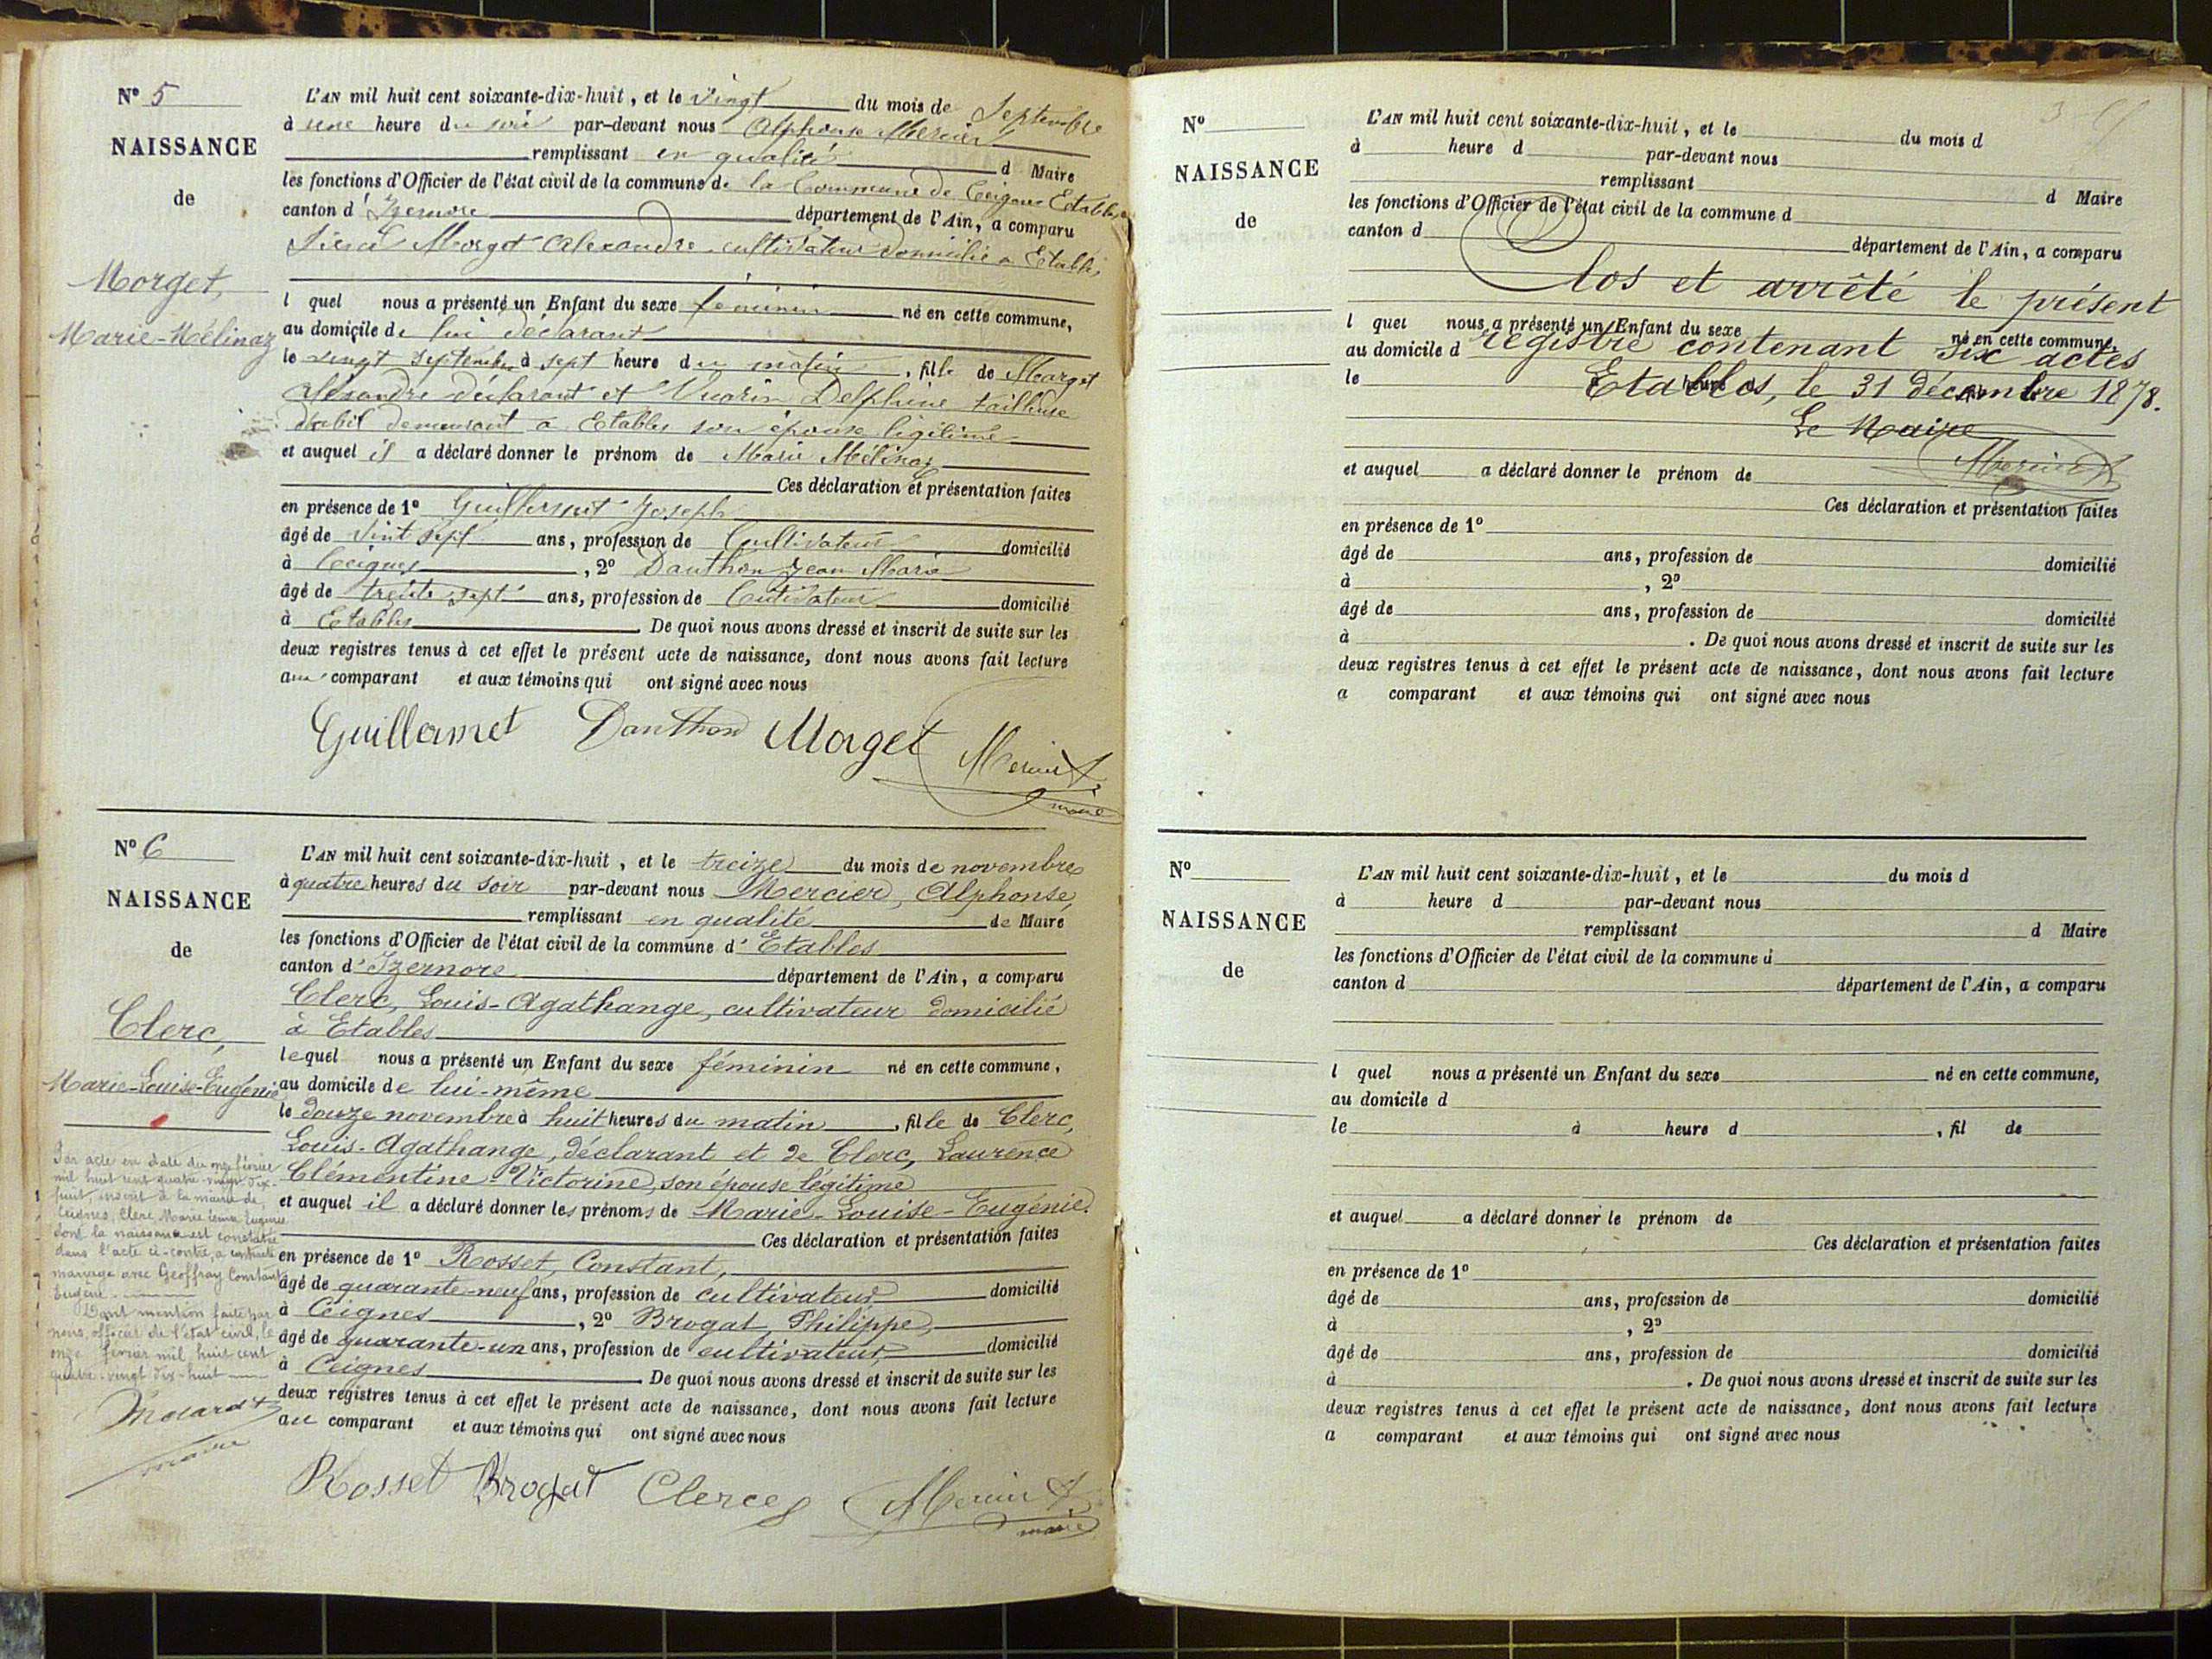 N° 5
NAISSANCE
de
Morget,
Marie-Mélinaz
L'AN mil huit cent soixante-dix-huit, et le vingt du mois de Septembre
à une heure du soir par-devant nous Alphonse Mercier
remplissant en qualité d Maire
les fonctions d'Officier de l'état civil de la commune de la Commune de Ceignes Etables
canton d'Izernore département de l'Ain, a comparu
Morget Alexandre cultivateur domicilié a Etables
l quel nous a présenté un Enfant du sexe féminin né en cette commune,
au domicile de lui déclarant
le vingt septembre à sept heure du matin, fille de Morget
Alexandre déclarant et Vuarin Delphine tailleuse
d'abit demeurant a Etables son épouse légitime
et auquel il a déclaré donner le prénom de Marie Mélinaz
Ces déclaration et présentation faites
en présence de 1° Guillermet Joseph
âgé de vint sept ans, profession de Cultivateur domicilié
à Ceignes, 2° Danthon Jean Marie
âgé de trente sept ans, profession de Cultivateur domicilié
à Etables. De quoi nous avons dressé et inscrit de suite sur les
deux registres tenus à cet effet le présent acte de naissance, dont nous avons fait lecture
au comparant et aux témoins qui ont signé avec nous
Guillermet Danthon Morget Mercier
maire
N° 6
NAISSANCE
de
Clerc,
Marie-Louise-Eugénie
L'AN mil huit cent soixante-dix-huit, et le treize du mois de novembre
à quatre heures du soir par-devant nous Mercier, Alphonse,
remplissant en qualité de Maire
les fonctions d'Officier de l'état civil de la commune d'Etables
canton d'Izernore département de l'Ain, a comparu
Clerc, Louis-Agathange, cultivateur domicilié
à Etables
lequel nous a présenté un Enfant du sexe féminin né en cette commune,
au domicile de lui-même
le douze novembre à huit heures du matin, fille de Clerc,
Louis-Agathange, déclarant et de Clerc, Laurence
Clémentine-Victorine, son épouse légitime
et auquel il a déclaré donner les prénoms de Marie-Louise-Eugénie.
Ces déclaration et présentation faites
en présence de 1° Rosset, Constant,
âgé de quarante-neuf ans, profession de cultivateur domicilié
à Ceignes, 2° Brogat Philippe,
âgé de quarante-un ans, profession de cultivateur, domicilié
à Ceignes. De quoi nous avons dressé et inscrit de suite sur les
deux registres tenus à cet effet le présent acte de naissance, dont nous avons fait lecture
au comparant et aux témoins qui ont signé avec nous
Rosset Brogat Clerc Mercier
maire
Par acte en date du onze février
mil huit cent quatre-vingt dix-
huit, inscrit à la mairie de
Ceignes, Clerc Marie Louise Eugénie
dont la naissance est constatée
dans l'acte ci-contre, a contracté
mariage avec Geoffray Constant
Eugène
Dont mention faite par
nous, officier de l'état civil, le
onze février mil huit cent
quatre-vingt dix-huit
maire
N°
NAISSANCE
de
L'AN mil huit cent soixante-dix-huit, et le du mois d
à heure d par-devant nous
remplissant d Maire
les fonctions d'Officier de l'état civil de la commune d
canton d département de l'Ain, a comparu
Clos et arrêté le présent
l quel nous a présenté un Enfant du sexe né en cette commune,
au domicile d
registre contenant six actes
le heure d
Etables, le 31 décembre 1878.
Le Maire
Mercier
et auquel a déclaré donner le prénom de
Ces déclaration et présentation faites
en présence de 1°
âgé de ans, profession de domicilié
à , 2°
âgé de ans, profession de domicilié
à . De quoi nous avons dressé et inscrit de suite sur les
deux registres tenus à cet effet le présent acte de naissance, dont nous avons fait lecture
a comparant et aux témoins qui ont signé avec nous
N°
NAISSANCE
de
L'AN mil huit cent soixante-dix-huit, et le du mois d
à heure d par-devant nous
remplissant d Maire
les fonctions d'Officier de l'état civil de la commune d
canton d département de l'Ain, a comparu
l quel nous a présenté un Enfant du sexe né en cette commune,
au domicile d
le à heure d , fil de
et auquel a déclaré donner le prénom de
Ces déclaration et présentation faites
en présence de 1°
âgé de ans, profession de domicilié
à , 2°
âgé de ans, profession de domicilié
à . De quoi nous avons dressé et inscrit de suite sur les
deux registres tenus à cet effet le présent acte de naissance, dont nous avons fait lecture
a comparant et aux témoins qui ont signé avec nous